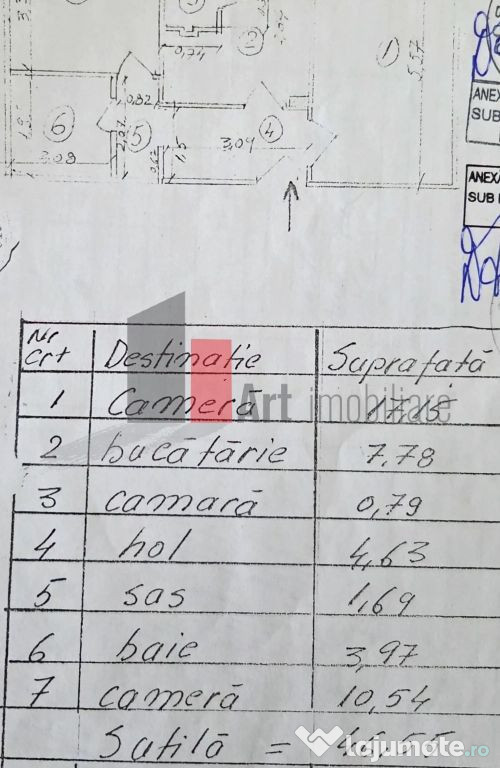 0,74
2
1
5,57
0,82
6
5
4
3,09
1,5
2,03
ANEX
SUB
ANEXA
SUB
Nr crt Destinație Suprafață
1 Cameră 17,15
2 bucătărie 7,78
3 camară 0,79
4 hol 4,63
5 sas 1,69
6 baie 3,97
7 cameră 10,54
Sutilă = 46,55
Art imobiliare
lajumate.ro